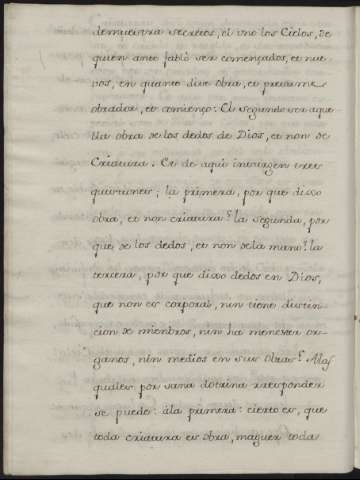 demuestra secretos, el vno los Cielos, de
quien ante fabló ser començados, et nue
vos, en quanto dize obra, et presume
obrador, et comienço: El segundo ser aque
lla obra de los dedos de Dios, et non de
Criatura. Et de aqui insurgen tres
quistiones; la primera, por que disso
obra, et non criatura? la segunda, por
que de los dedos, et non de la mano? la
tercera, por que dixo dedos en Dios,
que non es corporal, nin tiene distin
cion de miembros, nin ha menester or-
ganos, nin medios en sus obras? Alas
quales por sana dotrina rresponder
se puede: á la primera: cierto es, que
toda criatura es obra, maguer toda